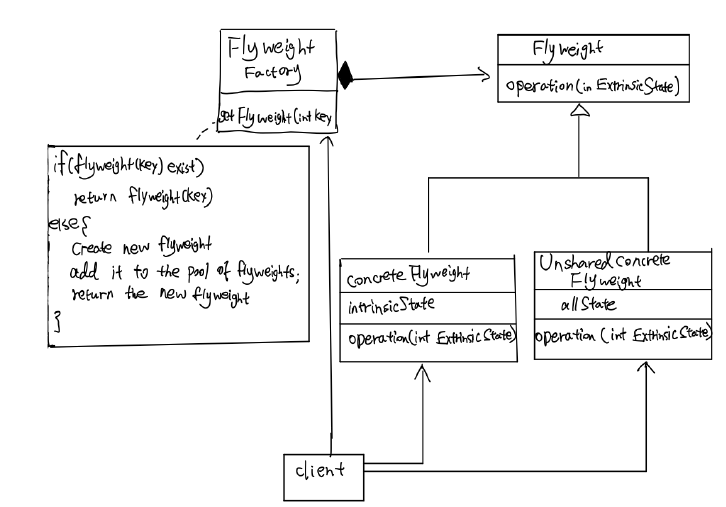 Flyweight
Factory
get Flyweight(int key
Flyweight
operation(in ExtrinsicState)
if(flyweight(key) exist)
return flyweight(key)
else{
Create new flyweight
add it to the pool of flyweights;
return the new flyweight
}
concrete Flyweight
intrinsicState
operation(int ExtrinsicState)
Unshared concrete
Flyweight
allState
operation (int ExtrinsicState)
client